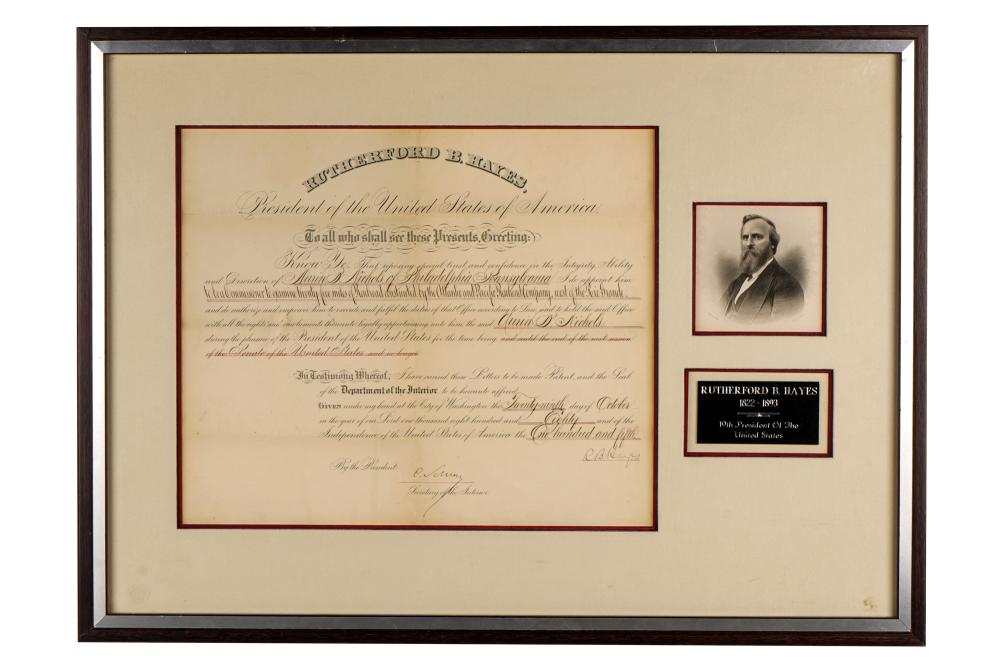 RUTHERFORD B. HAYES,
President of the United States of America.
To all who shall see these Presents, Greeting:
Know Ye, That reposing special trust and confidence in the Integrity, Ability
and Discretion of B. Nichols of Philadelphia Pennsylvania I do appoint him
to be a Commissioner to examine twenty five miles of Railroad constructed by the Atlantic and Pacific Railroad Company, west of the Rio Grande
and do authorize and empower him to execute and fulfil the duties of that Office according to Law, and to hold the said Office
with all the rights and emoluments thereunto legally appertaining unto him the said B. Nichols
during the pleasure of the President of the United States for the time being and until the end of the next session
of the Senate of the United States and no longer.
In Testimony Whereof, I have caused these Letters to be made Patent, and the Seal
of the Department of the Interior to be hereunto affixed.
GIVEN under my hand at the City of Washington the Twenty-ninth day of October
in the year of our Lord one thousand eight hundred and Eighty and of the
Independence of the United States of America the One hundred and fifth.
R B Hayes
By the President:
C. Schurz
Secretary of the Interior
RUTHERFORD B. HAYES
1822 - 1893
19th President Of The
United States